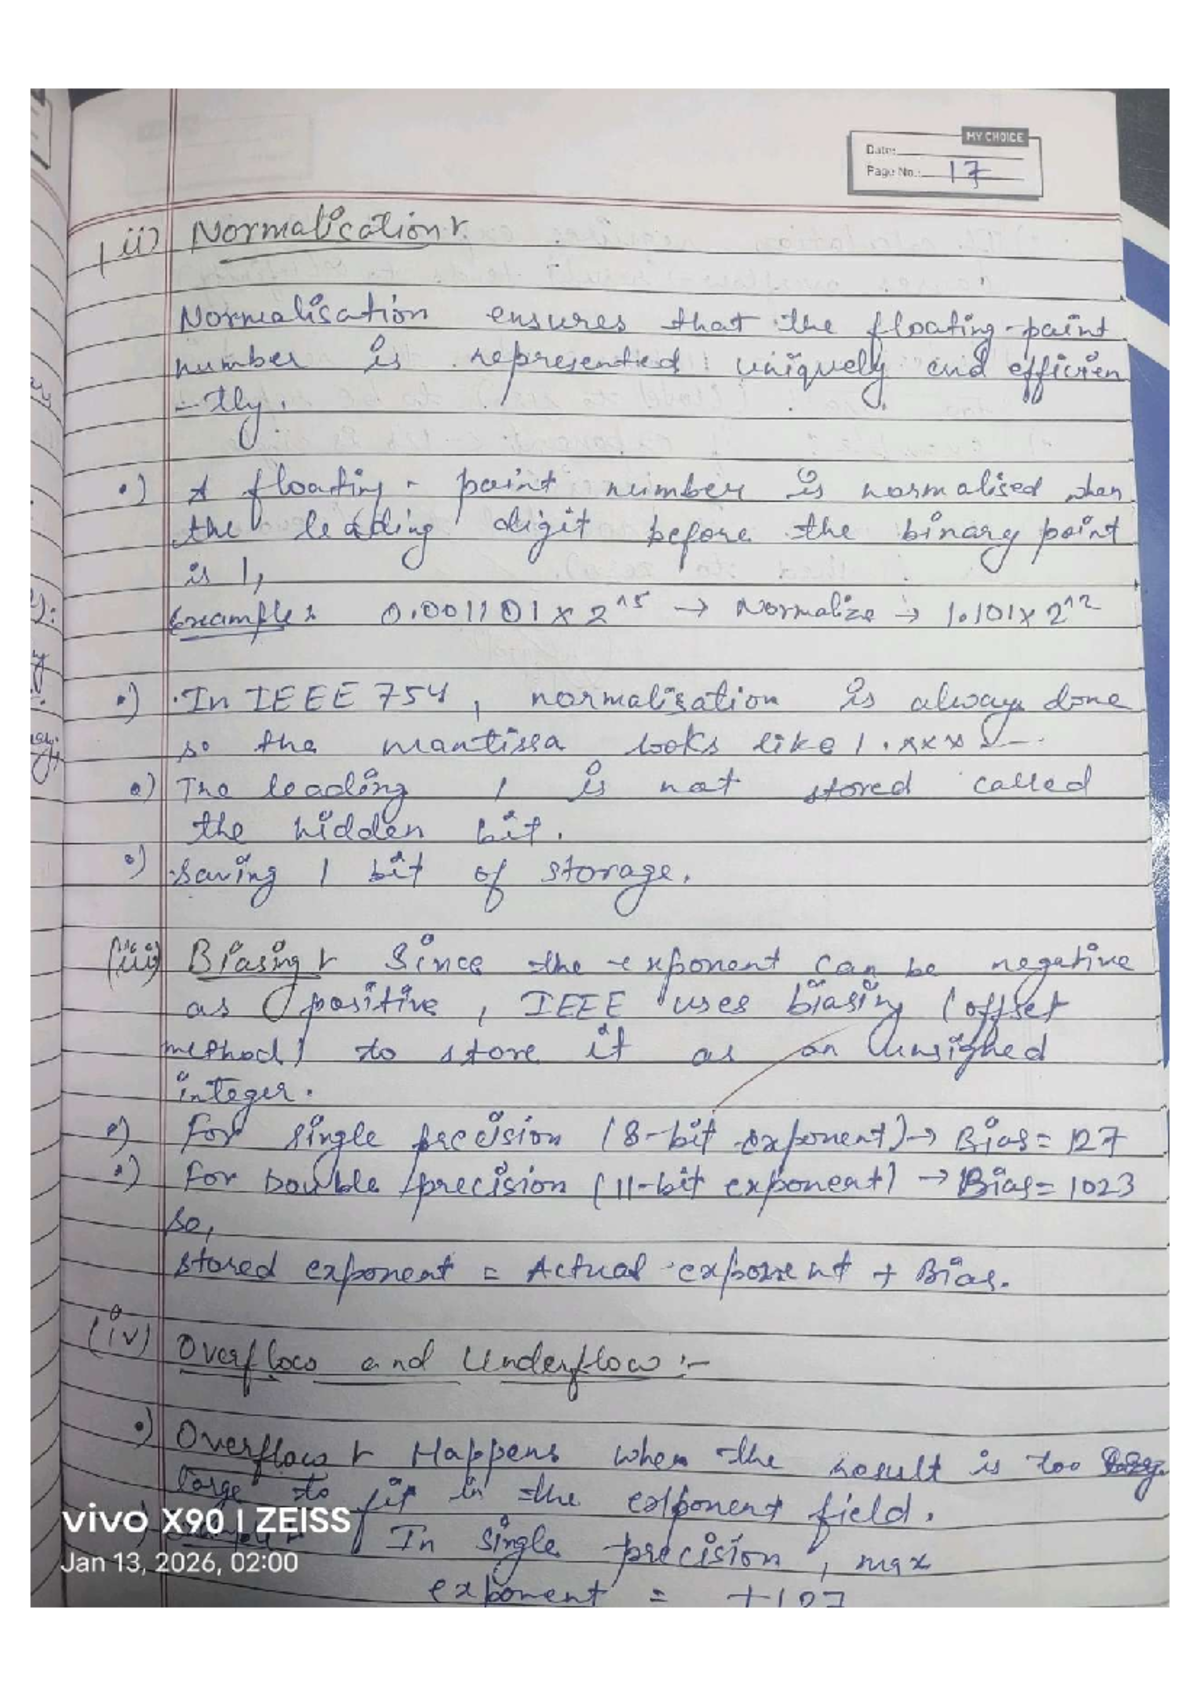 MY CHOICE
Date:
Page No.: 17
(ii) Normalisation :-
Normalisation ensures that the floating-point
number is represented uniquely and efficien
-tly.
•) A floating - point number is normalised when
the leading digit before the binary point
is 1,
Example: 0.001101 x 2^5 → Normalize → 1.101 x 2^2
•) In IEEE 754, normalisation is always done
so the mantissa looks like 1.xxx ---.
•) The leading 1 is not stored called
the hidden bit.
•) saving 1 bit of storage.
(iii) Biasing :- Since the exponent can be negative
as positive, IEEE uses biasing (offset
method) to store it as an unsigned
integer.
•) For single precision (8-bit exponent) → Bias = 127
•) For Double precision (11-bit exponent) → Bias = 1023
so,
stored exponent = Actual exponent + Bias.
(iv) Overflow and Underflow :-
•) Overflow :- Happens when the result is too
large to fit in the exponent field.
In single precision, max
exponent = +127
vivo X90 | ZEISS
Jan 13, 2026, 02:00